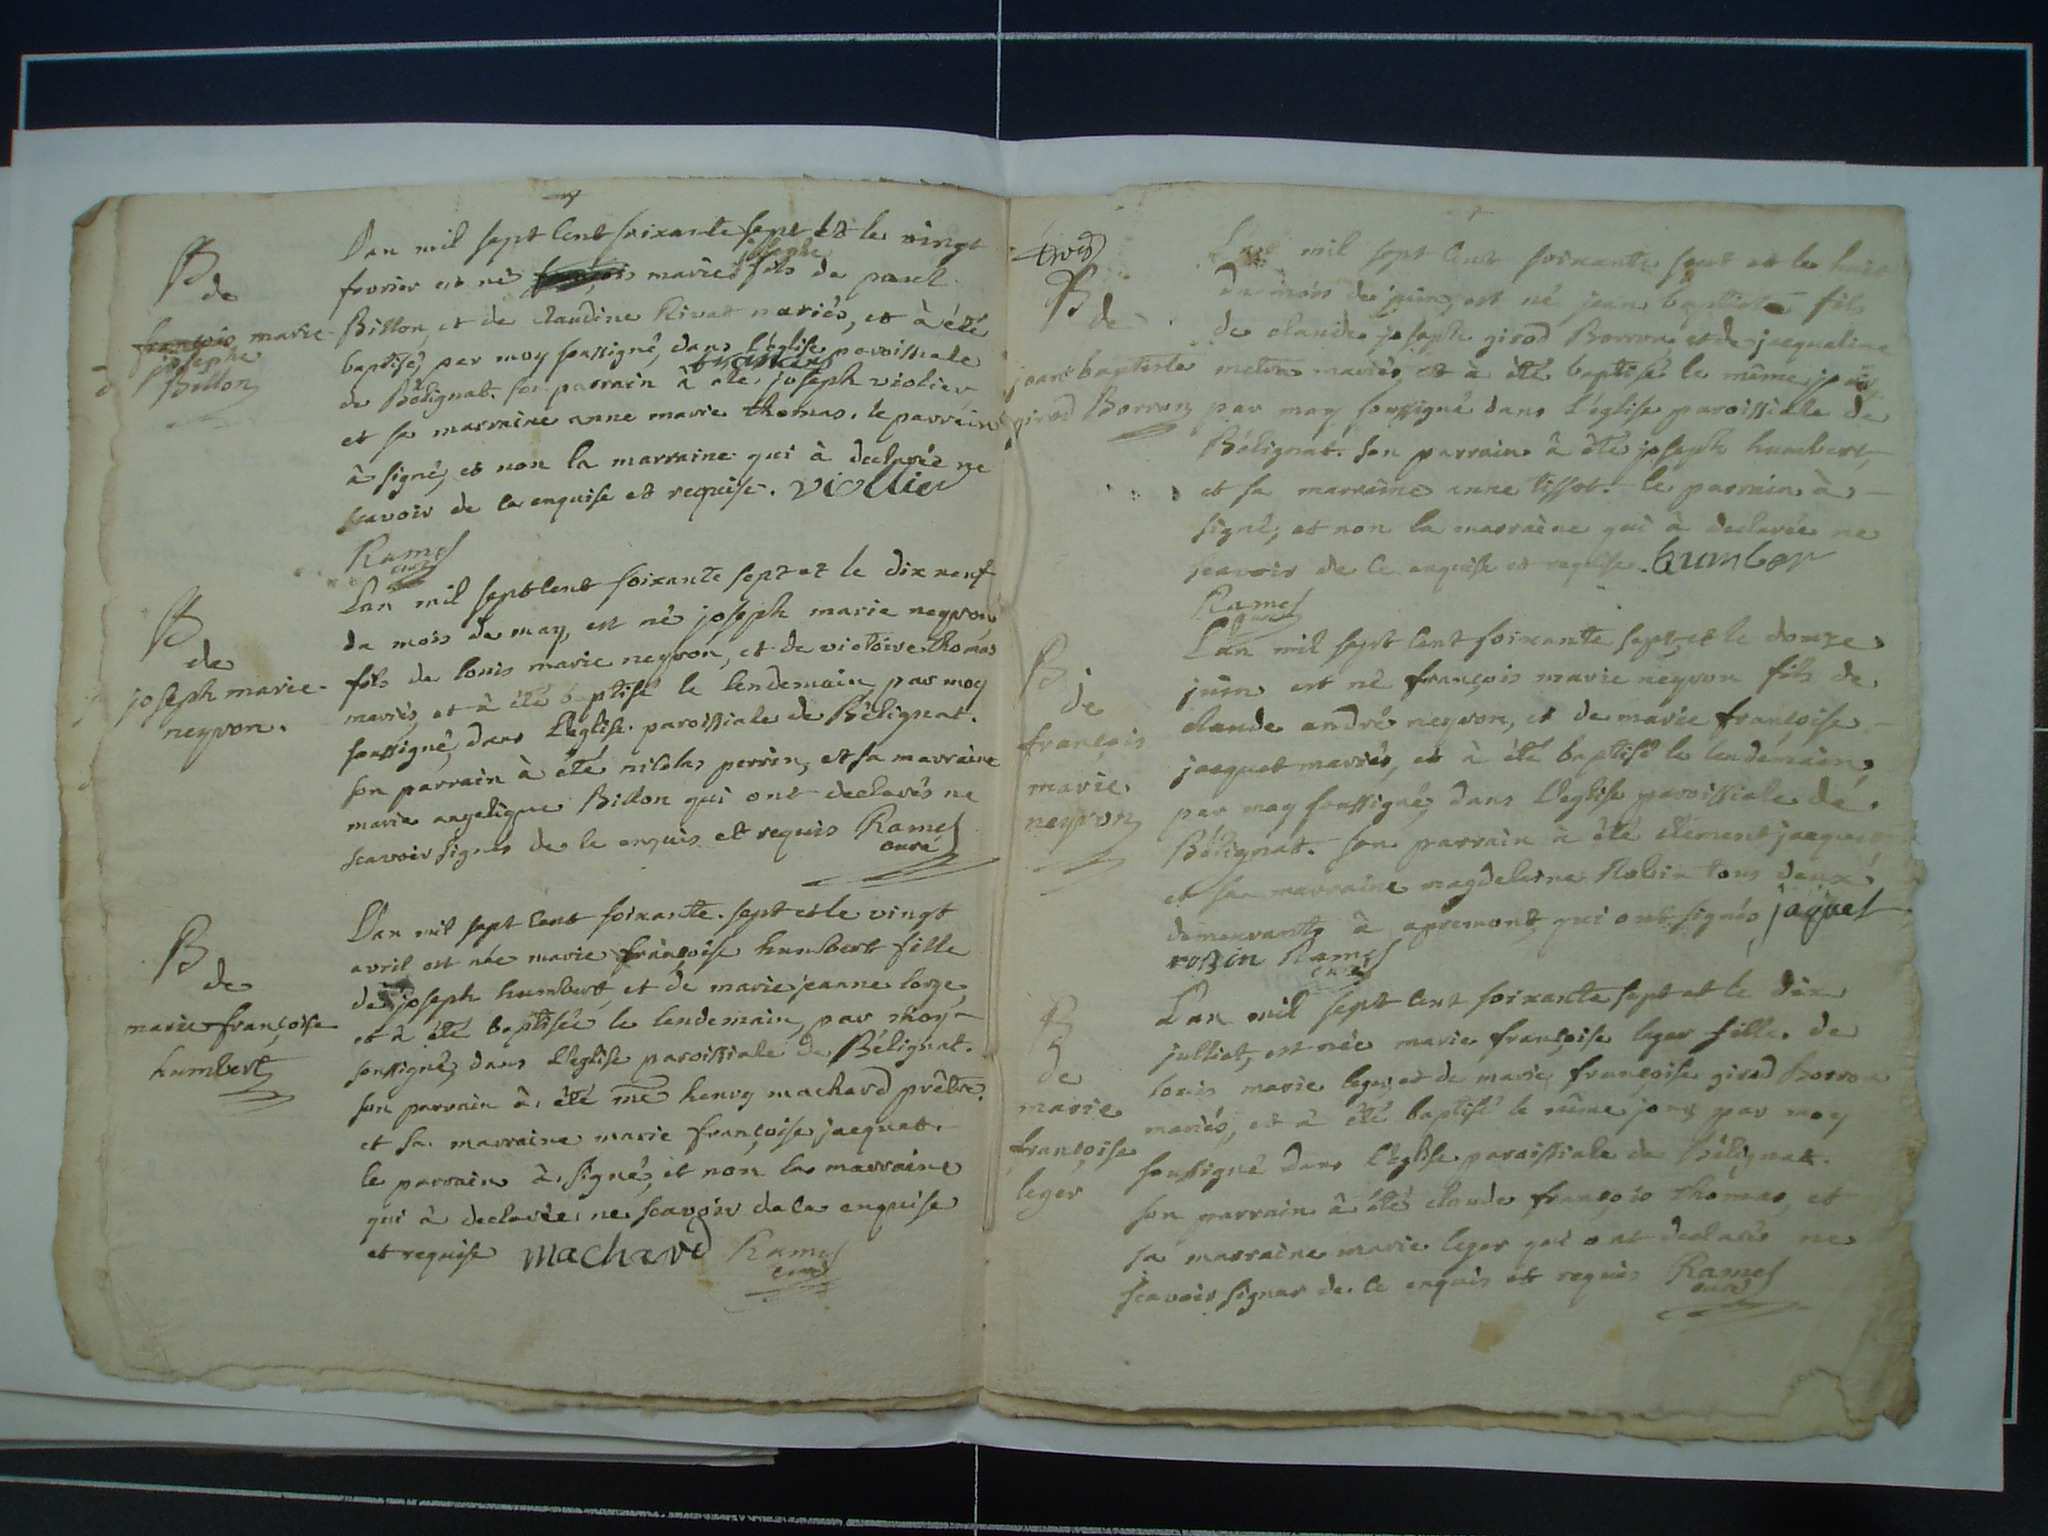 B
de
françois marie
josephe
Billon
Lan mil sept cent soixante sept et le vingt
fevrier est né marie josephe fils de
Billon, et de claudine Rivat mariés, et à été
baptisé, par moy soussigné, dans l'église paroissiale
de Bélignat. son parrain à été joseph violier
et sa marraine anne marie thomas. le parrain
à signé, et non la marraine qui à declarée ne
scavoir de ce enquise et requise. viollier
Ramel
curé
B
de
joseph marie
neyron.
Lan mil sept cent soixante sept et le dix neuf
du mois de may, est né joseph marie neyron
fils de louis marie neyron, et de victoire thomas
mariés, et à été baptisé le lendemain par moy
soussigné, dans l'église paroissiale de Bélignat.
son parrain à été nicolas perrin, et sa marraine
marie angelique Billon qui ont declarés ne
scavoir signer de ce enquis et requis Ramel
curé
B
de
marie françoise
humbert
Lan mil sept cent soixante sept et le vingt
avril est née marie françoise humbert fille
de joseph humbert, et de marie jeanne loze,
et à été baptisée le lendemain, par moy
soussigné, dans l'église paroissiale de Bélignat.
son parrain à été me henry machard prêtre,
et sa marraine marie françoise jacquet.
le parrain à signé, et non la marraine
qui à declarée ne scavoir de ce enquise
et requise machard Ramel
curé
trois
B
de
jean baptiste
girod Borron
Lan mil sept cent soixante sept et le huit
du mois de juin, est né jean baptiste fils
de claude joseph girod Borron et de jacqueline
meton mariés, et à été baptisé le même jour,
par moy soussigné dans l'église paroissiale de
Bélignat. son parrain à été joseph humbert,
et sa marraine anne tissot. le parrain à
signé, et non la marraine qui à declarée ne
scavoir de ce enquise et requise. humber
Ramel
curé
B
de
françois
marie
neyron
Lan mil sept cent soixante sept, et le douze
juin est né françois marie neyron fils de
claude andré neyron, et de marie françoise
jacquet mariés, et à été baptisé le lendemain,
par moy soussigné, dans l'église paroissiale de
Bélignat. son parrain à été clement jacquet
et sa marraine magdeleine Robin tous deux
demeurants à apremont, qui ont signés jaquet
robin Ramel
curé
B
de
marie
françoise
leger
Lan mil sept cent soixante sept et le dix
julliet, est née marie françoise leger fille de
louis marie leger, et de marie françoise girod Borron
mariés, et à été baptisé le même jour par moy
soussigné dans l'église paroissiale de Bélignat.
son parrain à été claude françois thomas, et
sa marraine marie leger qui ont declarés ne
scavoir signer de ce enquis et requis Ramel
curé